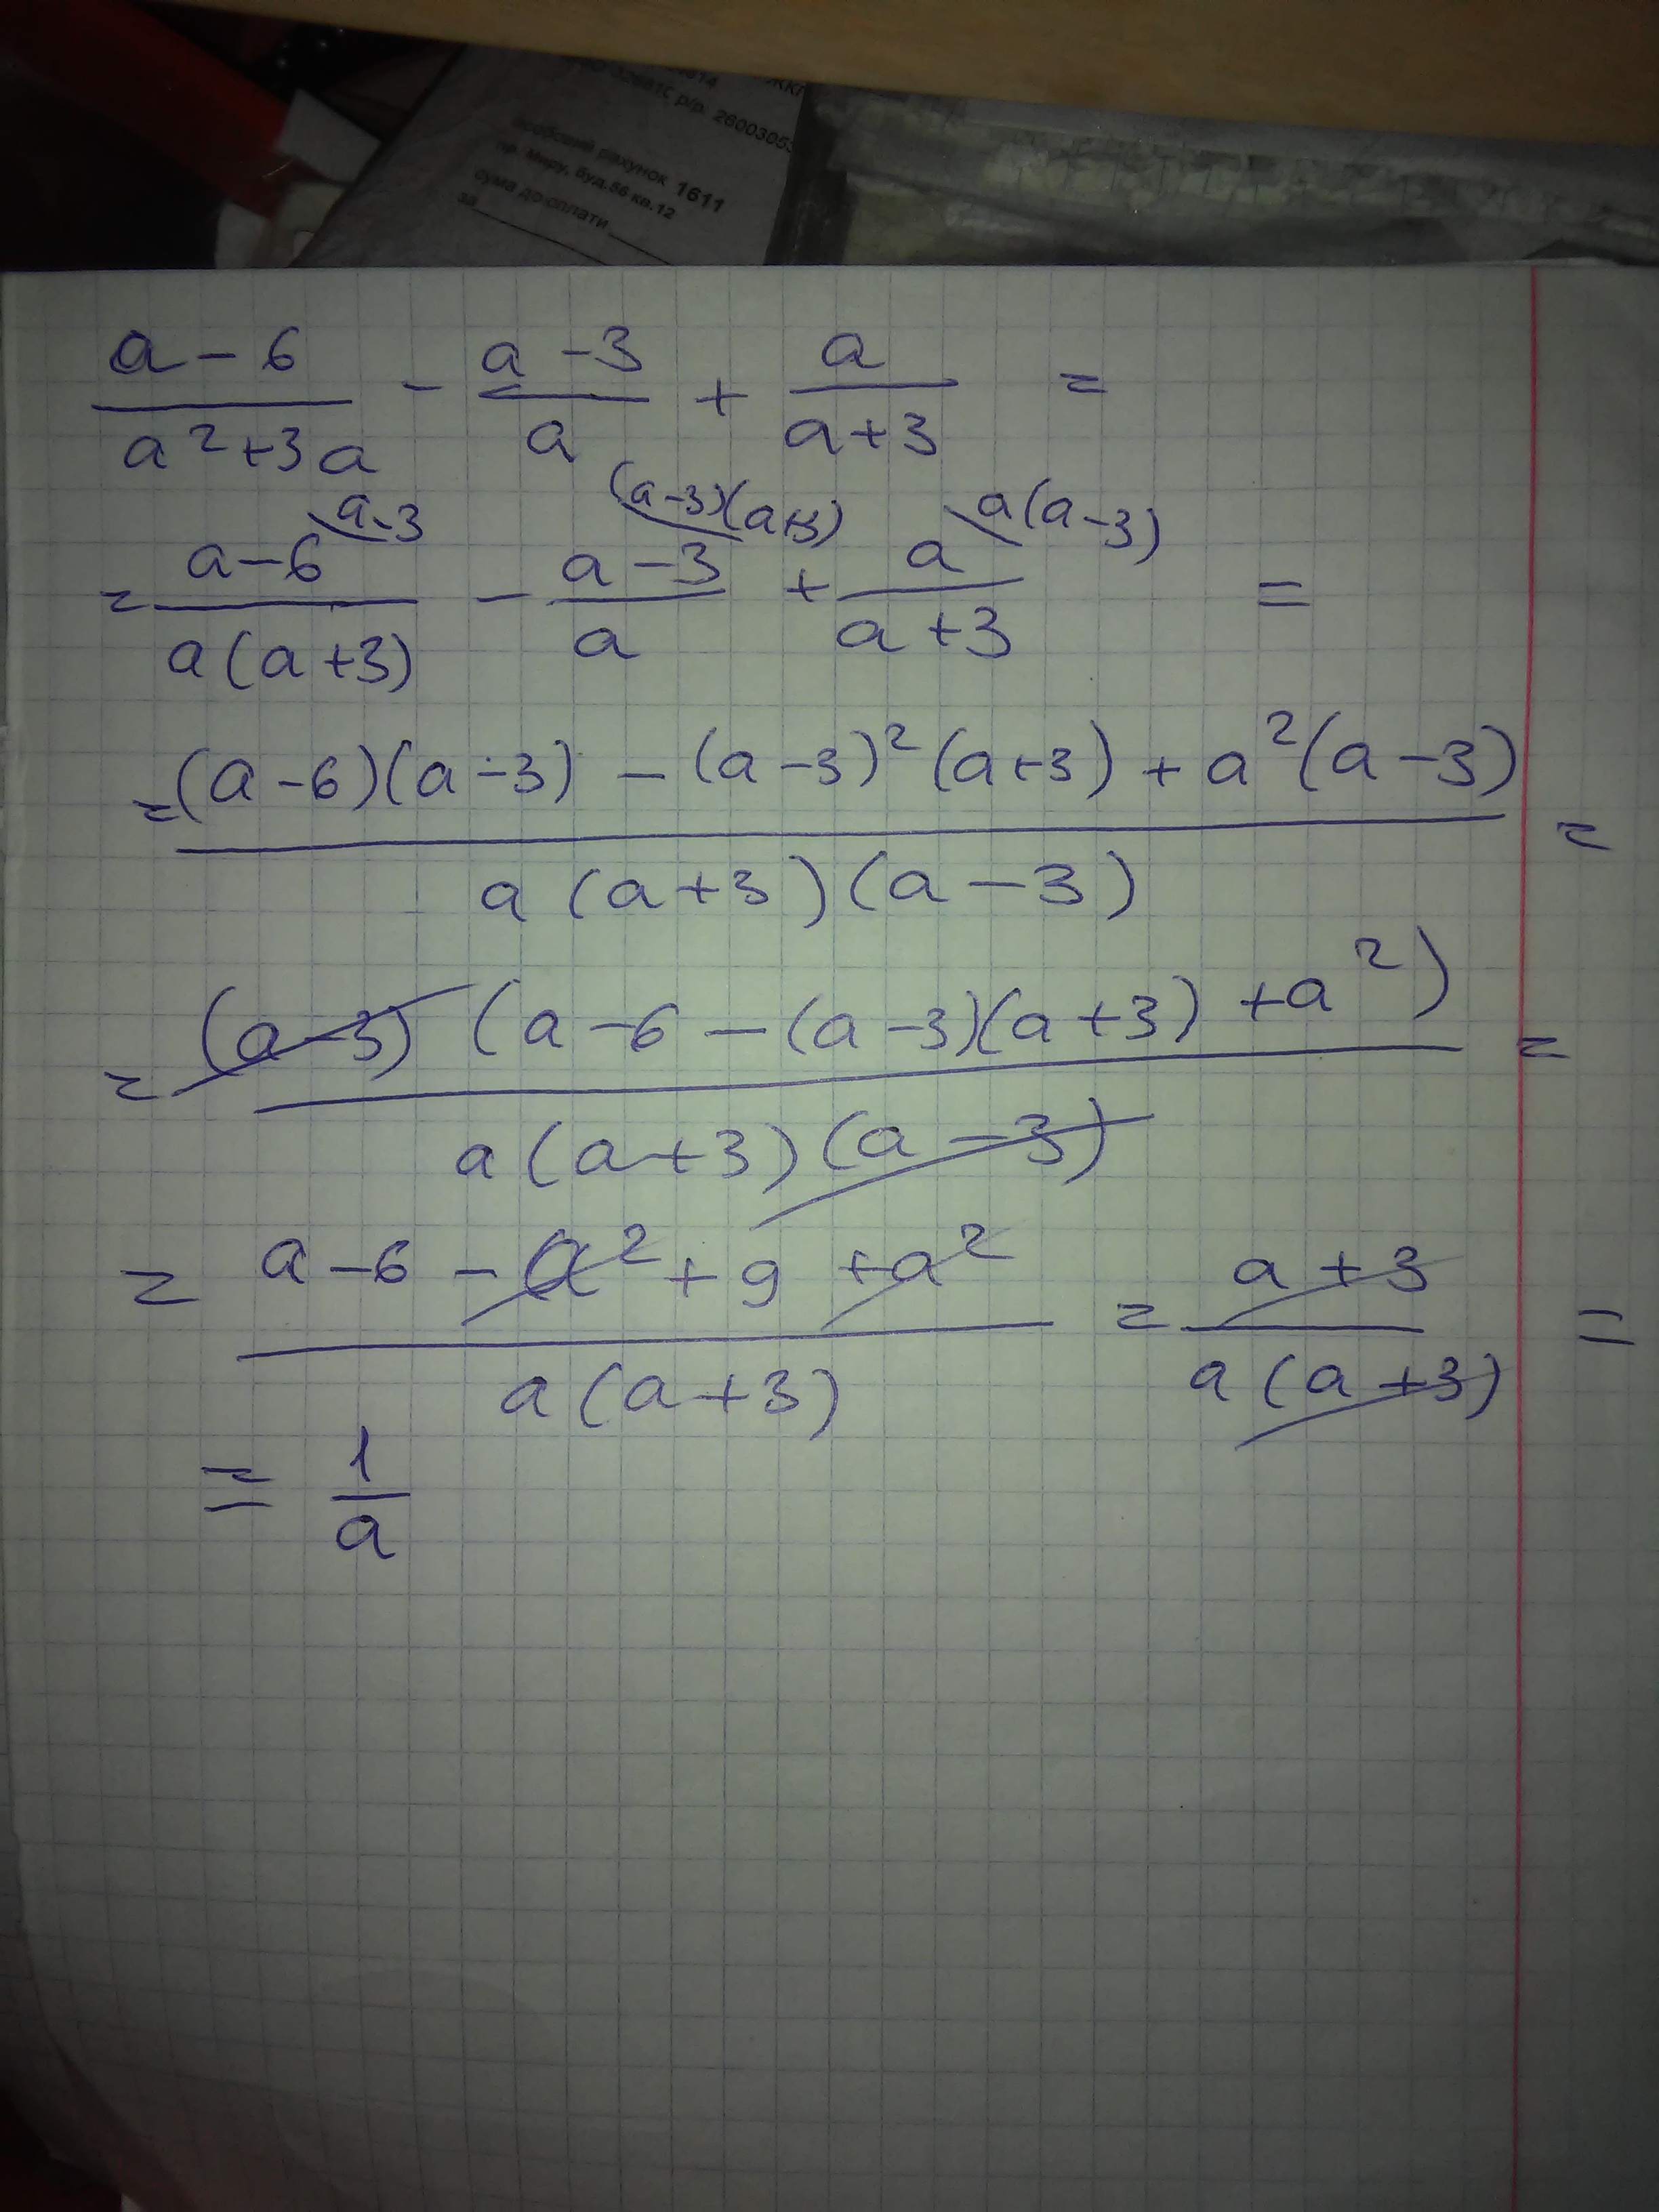 р/р: 2600305
особовий рахунок 1611
пр. Миру, буд.56 кв.12
сума до сплати
за
(a-6)/(a²+3a) - (a-3)/a + a/(a+3) =
= (a-6)\a-3 / a(a+3) - (a-3)\(a-3)(a+3) / a + a\a(a-3) / (a+3) =
= ((a-6)(a-3) - (a-3)²(a+3) + a²(a-3)) / (a(a+3)(a-3)) =
= ((a-3)(a-6-(a-3)(a+3)+a²)) / (a(a+3)(a-3)) =
= (a-6-a²+9+a²) / (a(a+3)) = (a+3) / (a(a+3)) =
= 1/a